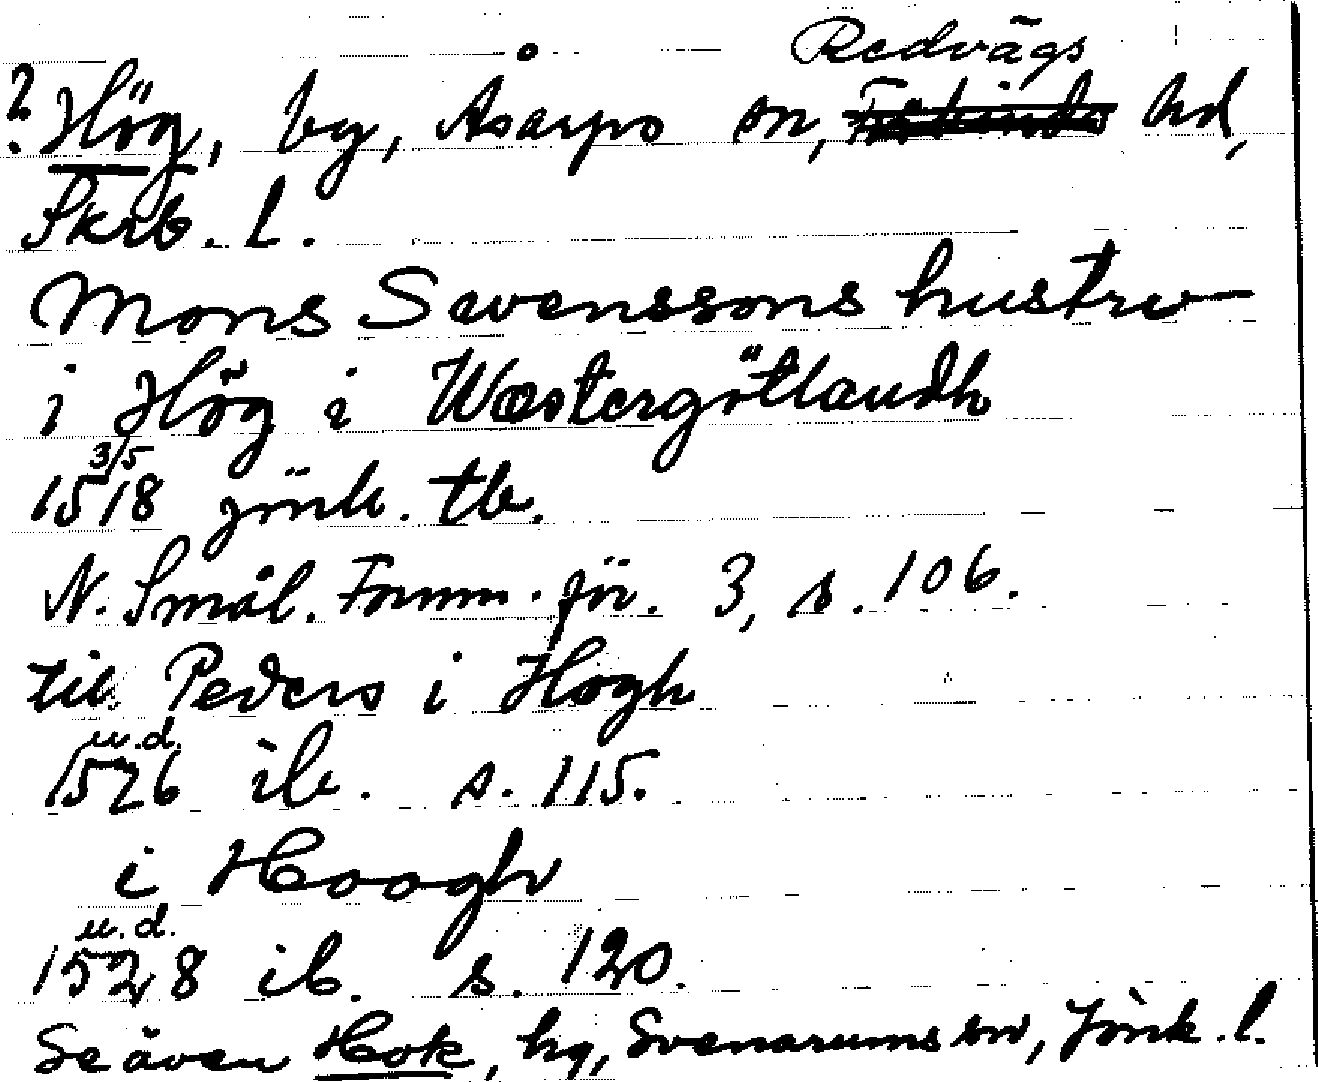 Redvägs
? Hög, by, Åsarps sn, hd,
Skrb. l.
Mons Swenssons hustrw
i Hög i Wæstergötlandh
3/5
1518 Jönk. tb.
N. Smål. Fornm. för. 3, s. 106.
til Peders i Høgh
u.d.
1526 ib. s. 115.
i Hoogh
u.d.
1528 ib. s. 120.
Se även Hok, hg, Svenarums sn, Jönk. l.